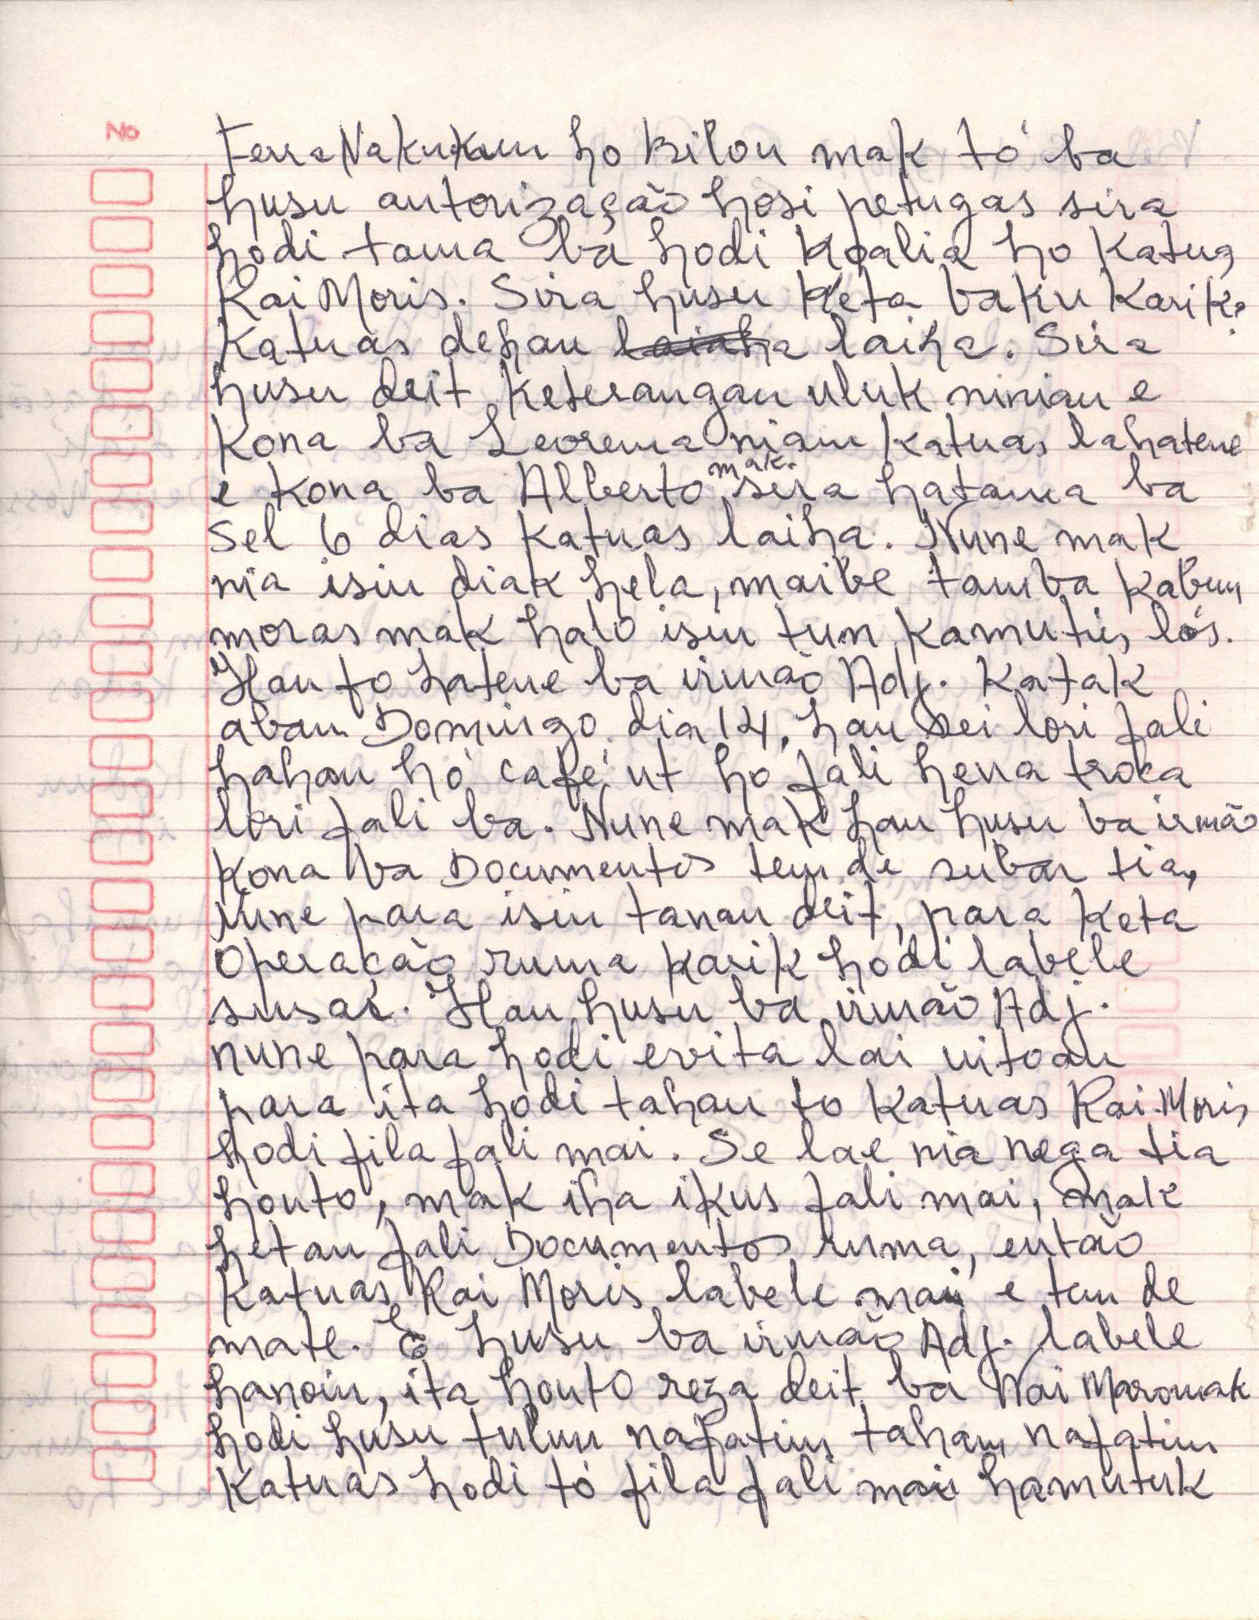 No
Terra Nakukun ho Bilou mak to' ba
husu autorização hosi petugas sira
hodi tama ba hodi koalia ho Katuas
Rai Moris. Sira husu keta baku karik?
Katuas dehan laiha. Sira
husu deit keterangan uluk ninian e
kona ba Leorema nian katuas lahatene
e kona ba Alberto mak sira hatama ba
Sel 6 dias katuas laiha. Nune mak
nia isin diak hela, maibe tamba kabun
moras mak halo isin tun kamutis lós.
Hau fo hatene ba irmão Adj. Katak
aban Domingo dia 14, hau sei lori fali
hahan hó café ut ho fali hena troca
lori fali ba. Nune mak hau husu ba irmão
kona ba Documentos tem de subar tia,
nune para isin tanan deit, para keta
Operação ruma karik hodi labele
susar. Hau husu ba irmão Adj.
nune para hodi evita lai uitoan
para ita hodi tahan to katuas Rai-Moris
hodi fila fali mai. Se lae nia nega tia
houto, mak iha ikus fali mai, mak
hetan fali Documentos ruma, então
Katuas Rai Moris labele mai e ten de
mate. E husu ba irmão Adj. labele
hanoin, ita houto reza deit ba Nai Maromak
hodi husu tulun nafatin tahan nafatin
katuas hodi tó fila fali mai hamutuk